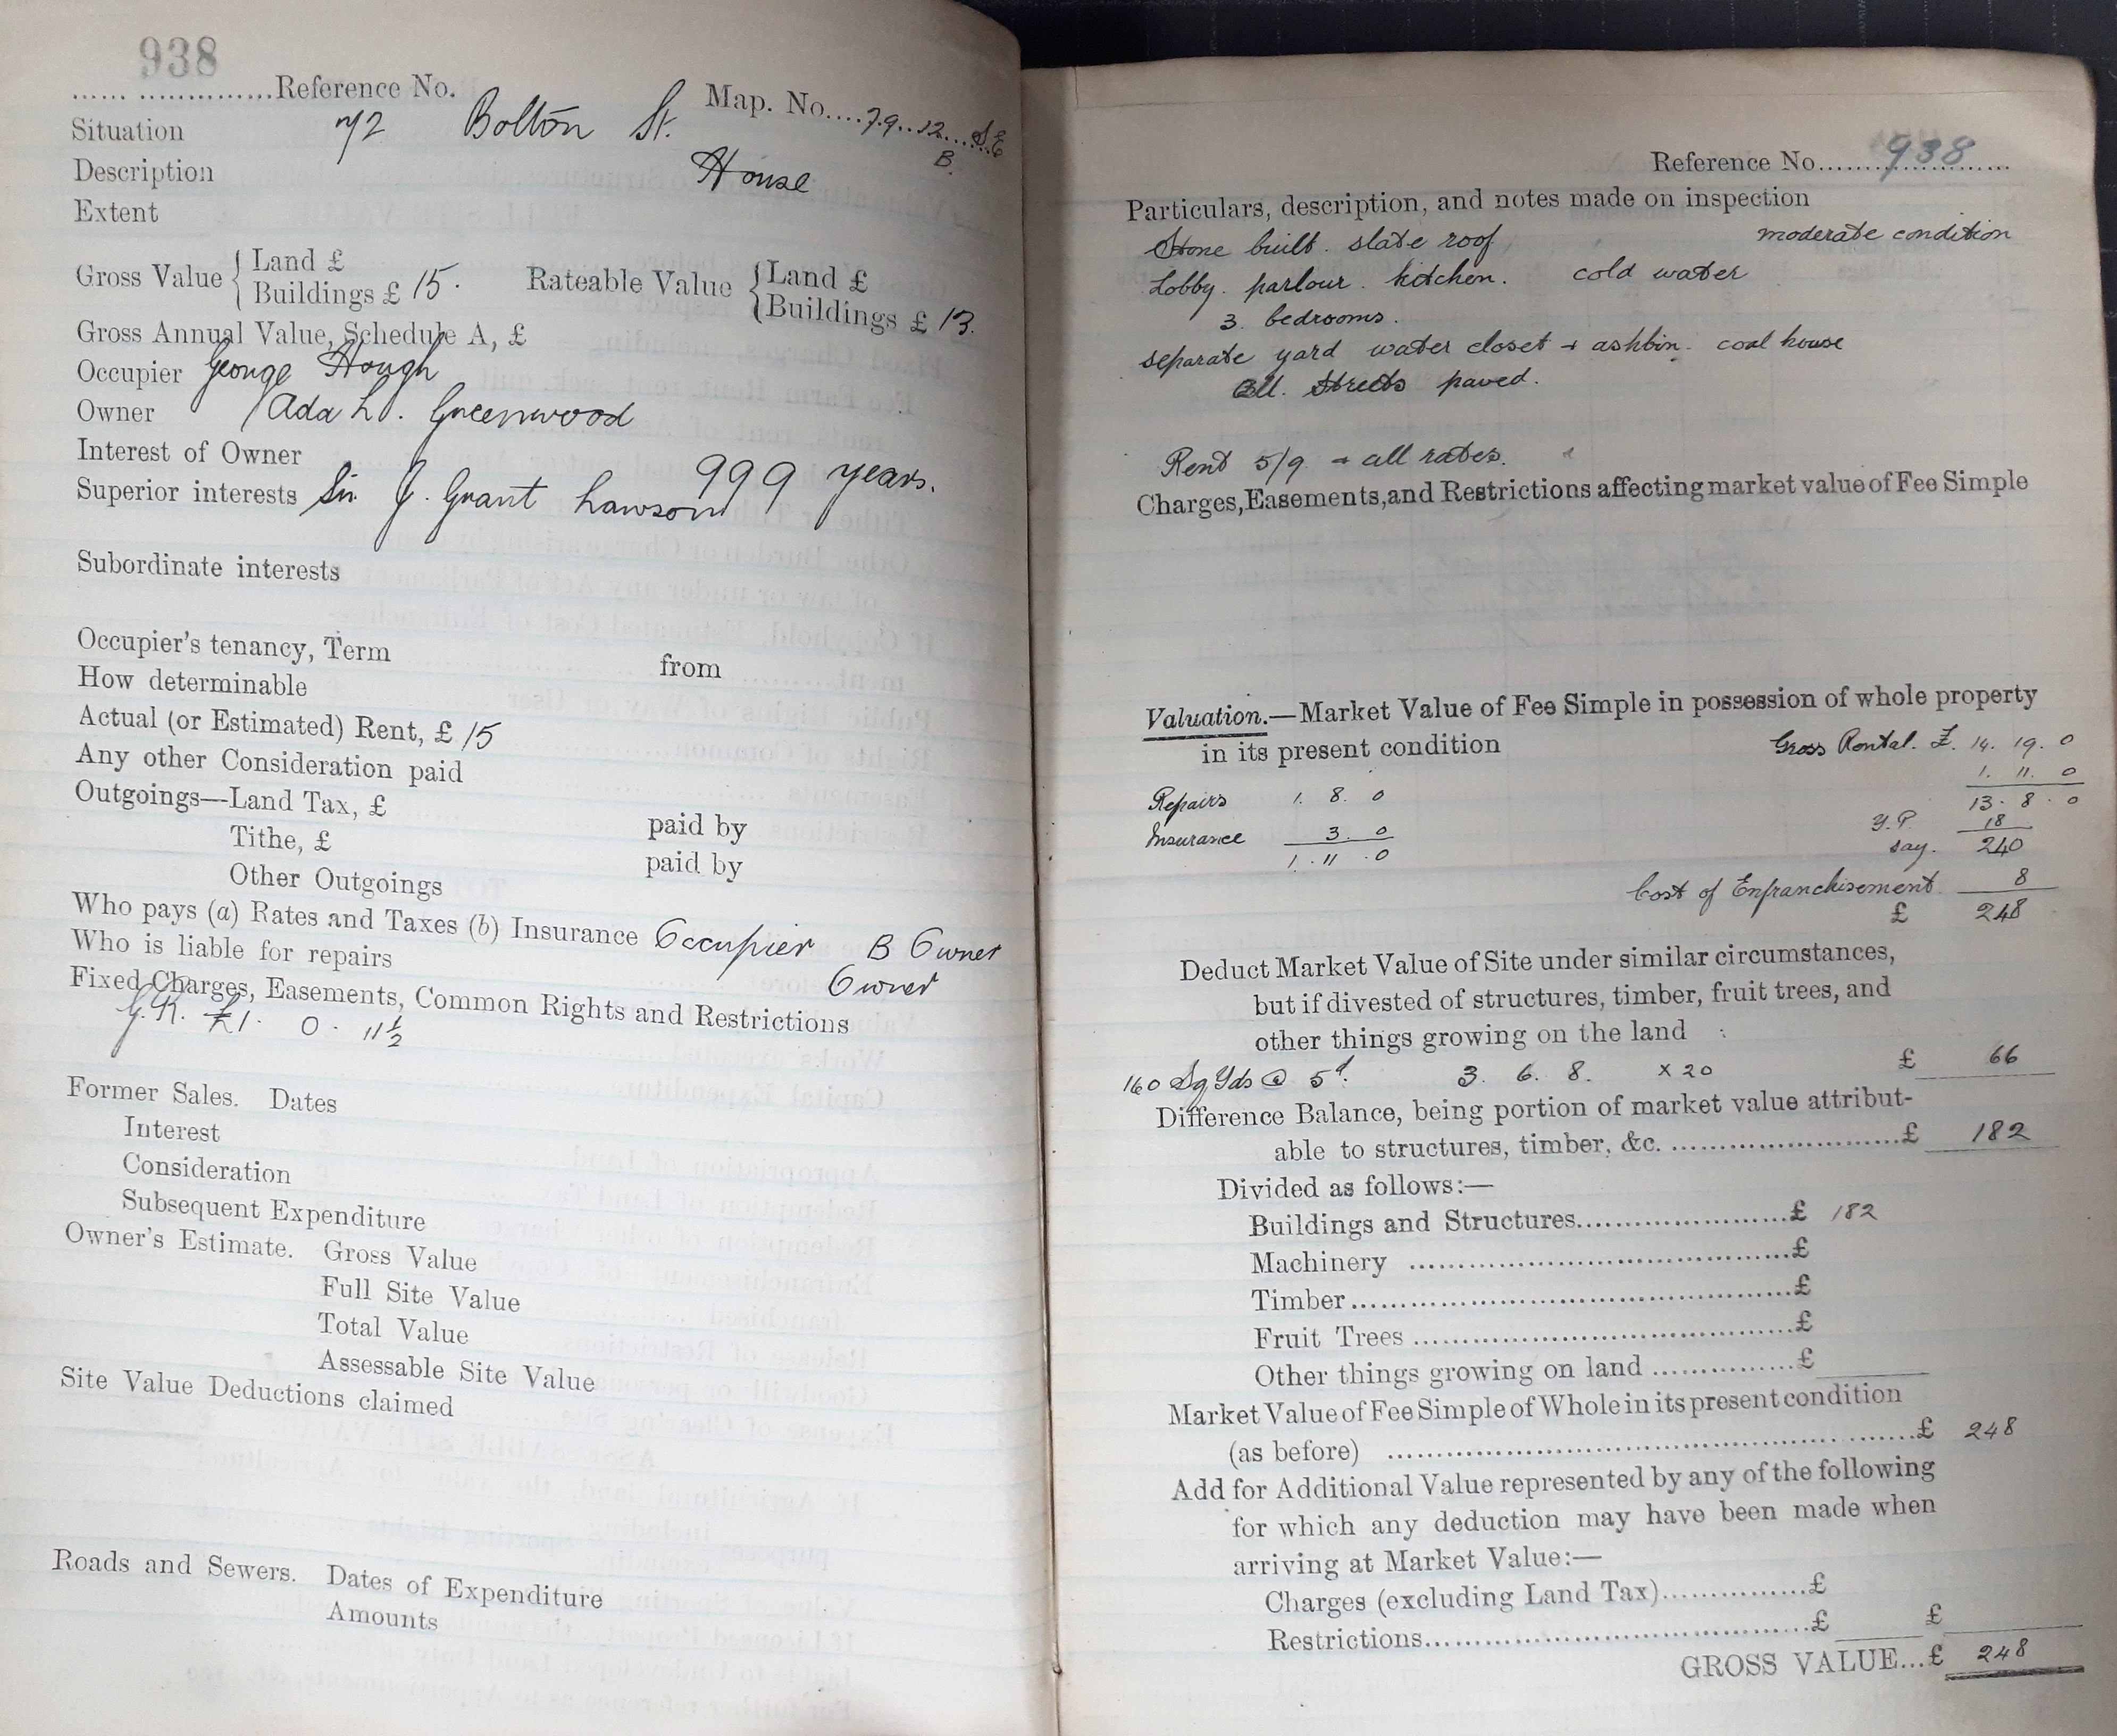 938
...... ..............Reference No. Map. No....79..12....S.E
Situation 72 Bolton St. B.
Description House
Extent
Gross Value { Land £ Rateable Value { Land £
Buildings £ 15. Buildings £ 13.
Gross Annual Value, Schedule A, £
Occupier George Hough
Owner Ada L. Greenwood
Interest of Owner 999 years.
Superior interests Sir J. Grant Lawson
Subordinate interests
Occupier's tenancy, Term from
How determinable
Actual (or Estimated) Rent, £ 15
Any other Consideration paid
Outgoings—Land Tax, £ paid by
Tithe, £ paid by
Other Outgoings
Who pays (a) Rates and Taxes (b) Insurance Occupier B Owner
Who is liable for repairs Owner
Fixed Charges, Easements, Common Rights and Restrictions
G.R. £1. 0. 11½
Former Sales. Dates
Interest
Consideration
Subsequent Expenditure
Owner's Estimate. Gross Value
Full Site Value
Total Value
Assessable Site Value
Site Value Deductions claimed
Roads and Sewers. Dates of Expenditure
Amounts
Reference No......938......
Particulars, description, and notes made on inspection
Stone built. slate roof moderate condition
Lobby. parlour. kitchen. cold water
3. bedrooms.
separate yard water closet + ashbin. coal house
All. Streets paved.
Rent 5/9 + all rates.
Charges, Easements, and Restrictions affecting market value of Fee Simple
Valuation.—Market Value of Fee Simple in possession of whole property
in its present condition Gross Rental. £. 14. 19. 0
1. 11. 0
Repairs 1. 8. 0 13. 8. 0
Insurance 3. 0 Y.P. 18
1. 11. 0 say. 240
Cost of Enfranchisement 8
£ 248
Deduct Market Value of Site under similar circumstances,
but if divested of structures, timber, fruit trees, and
other things growing on the land
160 Sq Yds @ 5d. 3. 6. 8. x 20 £ 66
Difference Balance, being portion of market value attribut-
able to structures, timber, &c. ........................£ 182
Divided as follows:—
Buildings and Structures......................£ 182
Machinery ......................................£
Timber............................................£
Fruit Trees ......................................£
Other things growing on land ...............£
Market Value of Fee Simple of Whole in its present condition
(as before) ......................................................£ 248
Add for Additional Value represented by any of the following
for which any deduction may have been made when
arriving at Market Value:—
Charges (excluding Land Tax)...............£
Restrictions......................................£ £
GROSS VALUE...£ 248